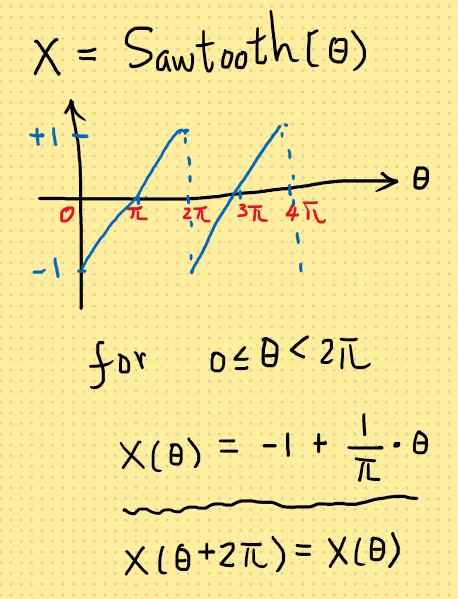 X = Sawtooth(θ)
+1
θ
0 π 2π 3π 4π
-1
for 0 ≤ θ < 2π
X(θ) = -1 + 1/π · θ
X(θ+2π) = X(θ)